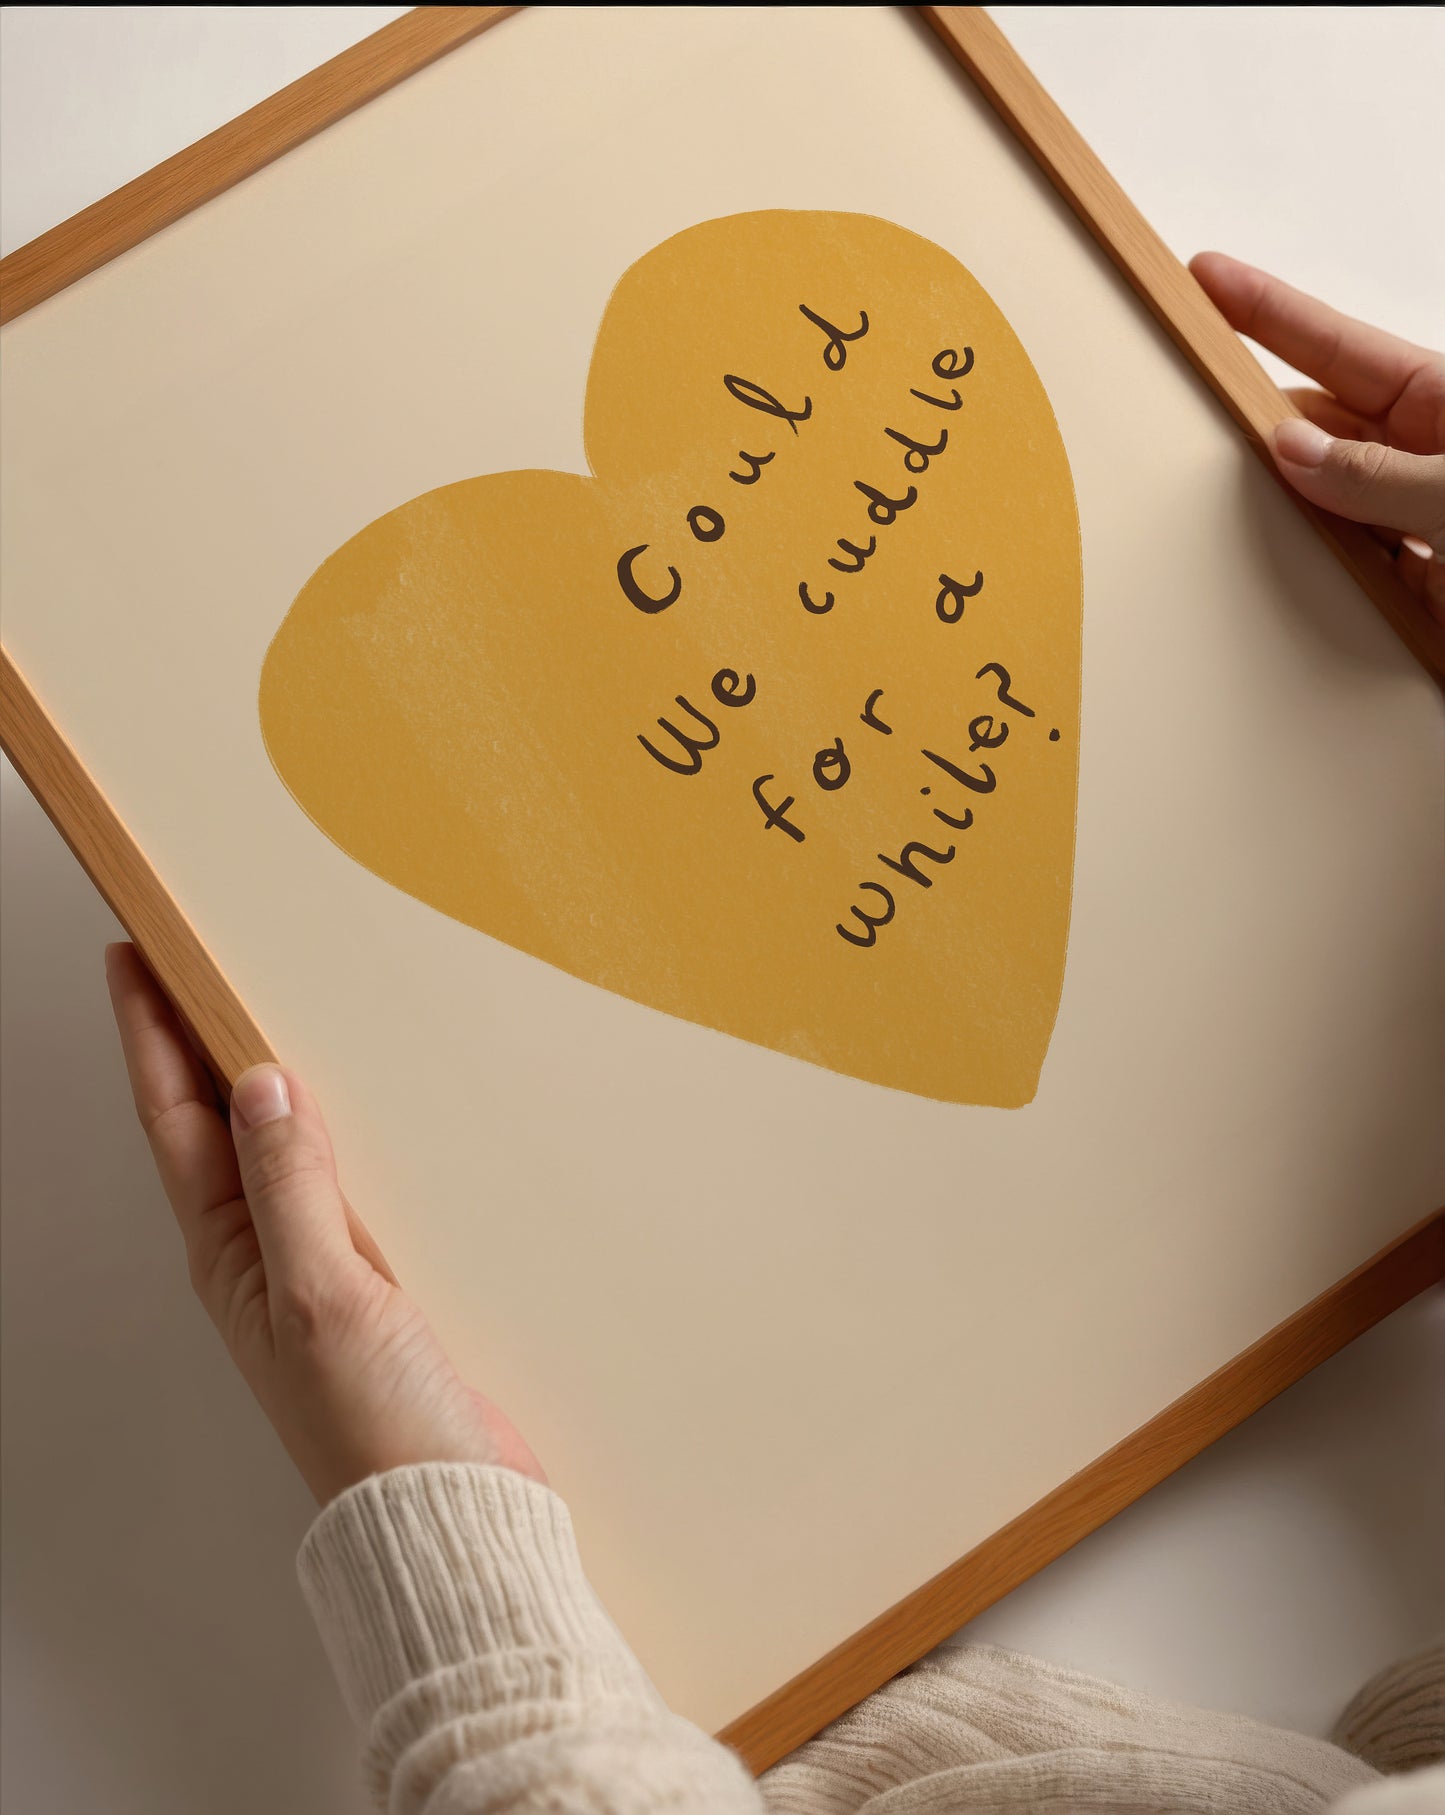 Could
We cuddle
for a
while?